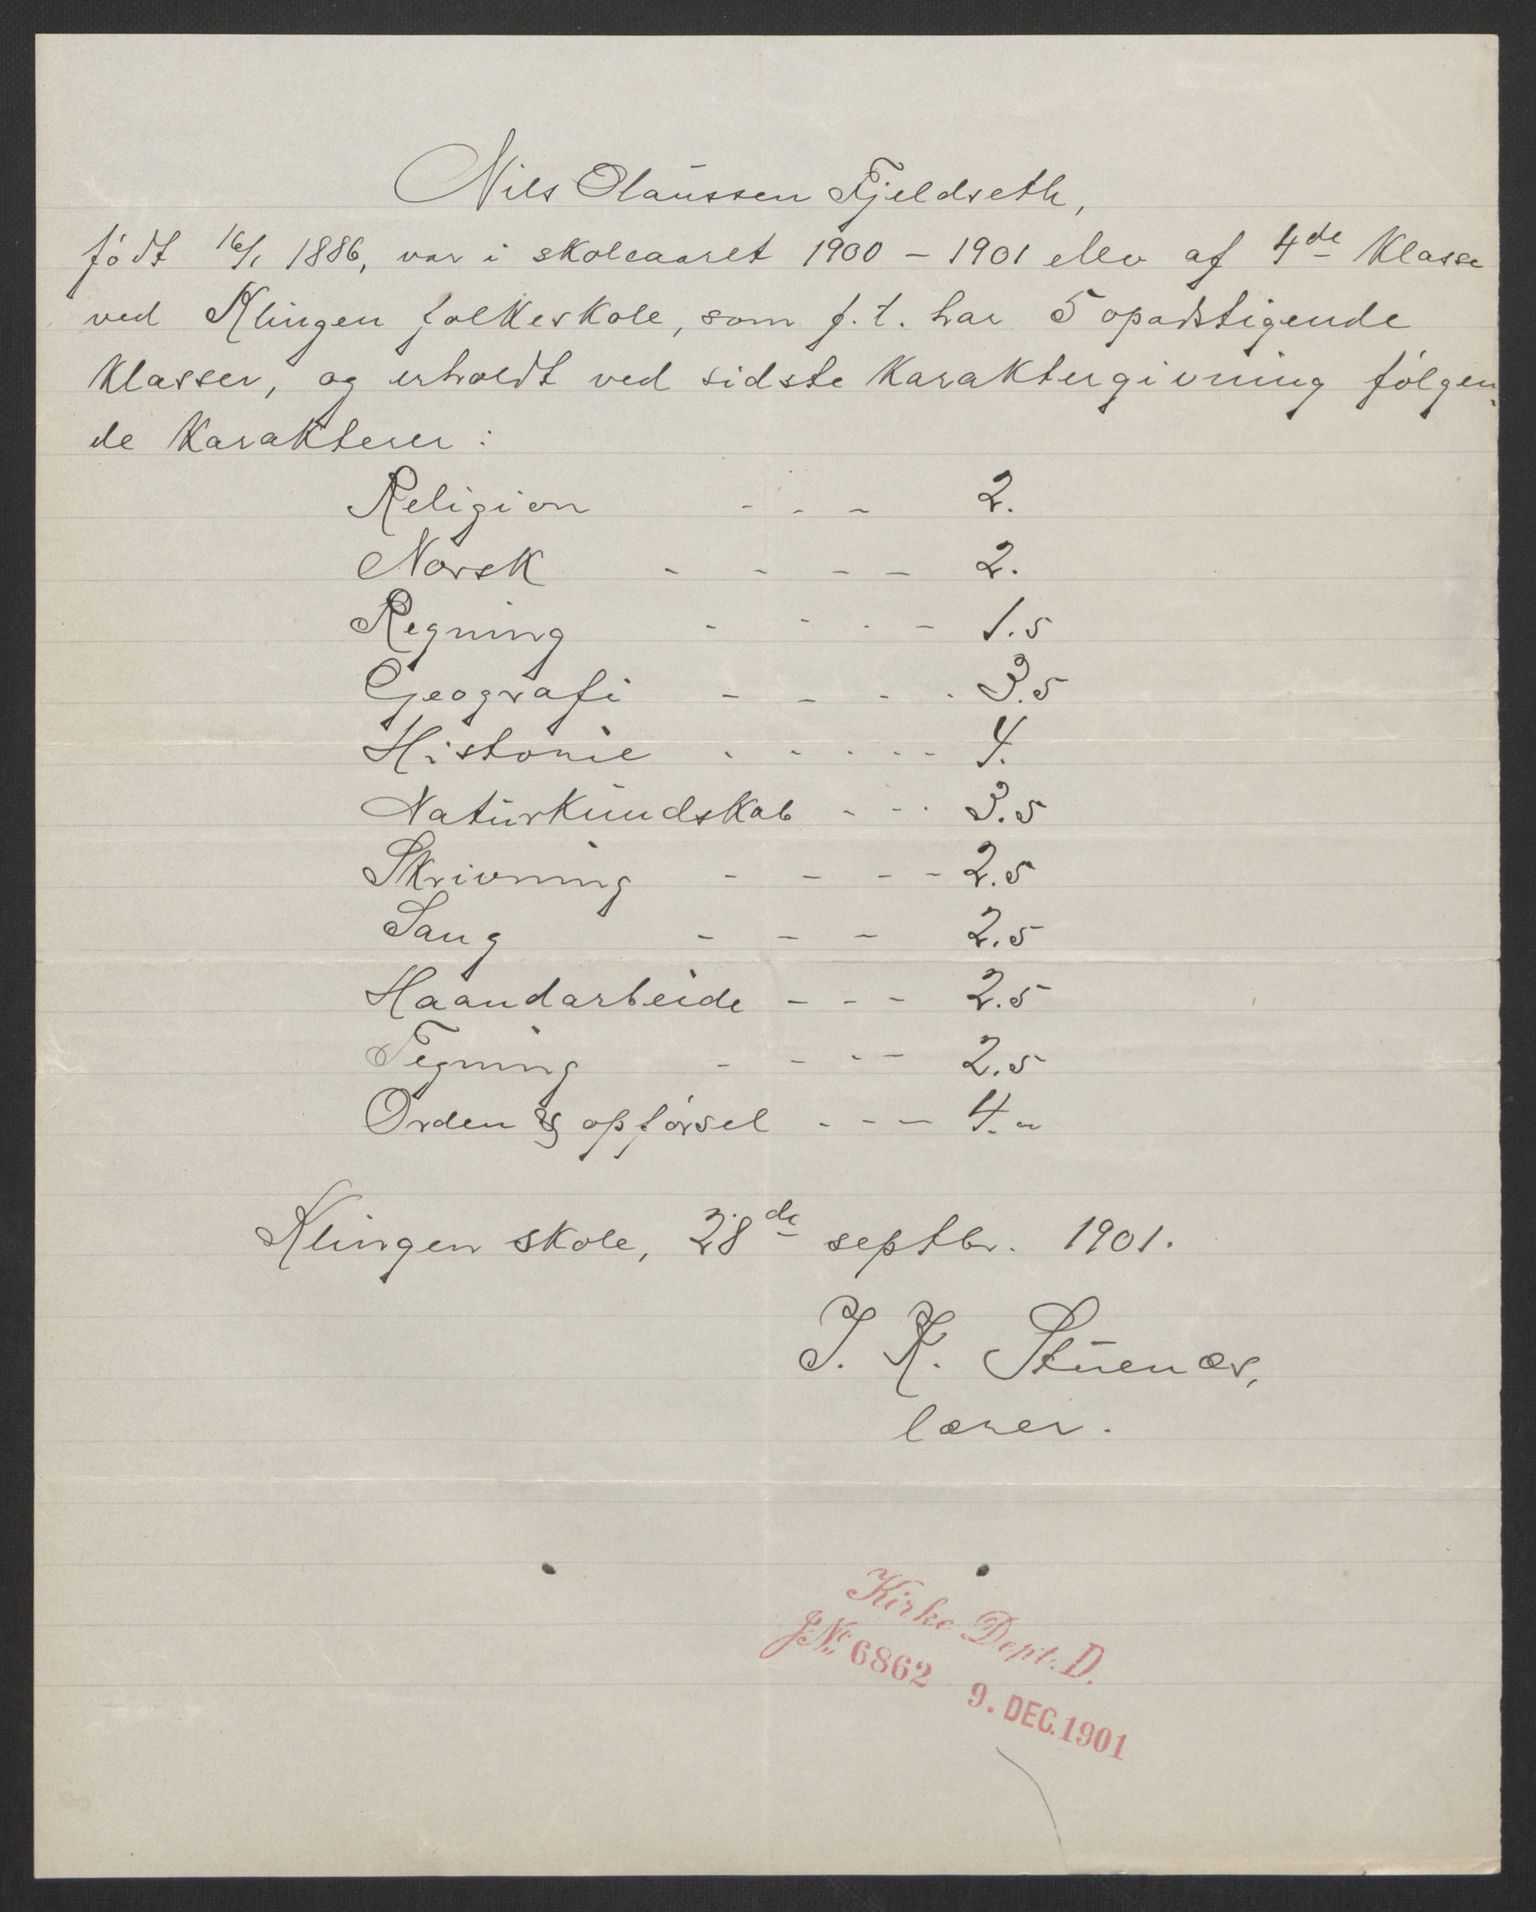 Nils Olaussen Fjeldseth,
født 16/1 1886, var i skoleaaret 1900 – 1901 elev af 4de Klasse
ved Klingen folkeskole, som f. t. har 5 opadstigende
Klasser, og erholdt ved sidste Karaktergivning følgen-
de Karakterer:
Religion - - - 2.
Norsk - - - - 2.
Regning - - - - 1.5
Geografi - - - - 3.5
Historie - - - - - 4.
Naturkundskab - - - 3.5
Skrivning - - - - 2.5
Sang - - - 2.5
Haandarbeide - - - 2.5
Tegning - - - - 2.5
Orden & opførsel - - - 4.
Klingen skole, 28de septbr. 1901.
J. K. Stuenæs,
lærer.
Kirke Dept. D.
J№ 6862 9. DEC. 1901